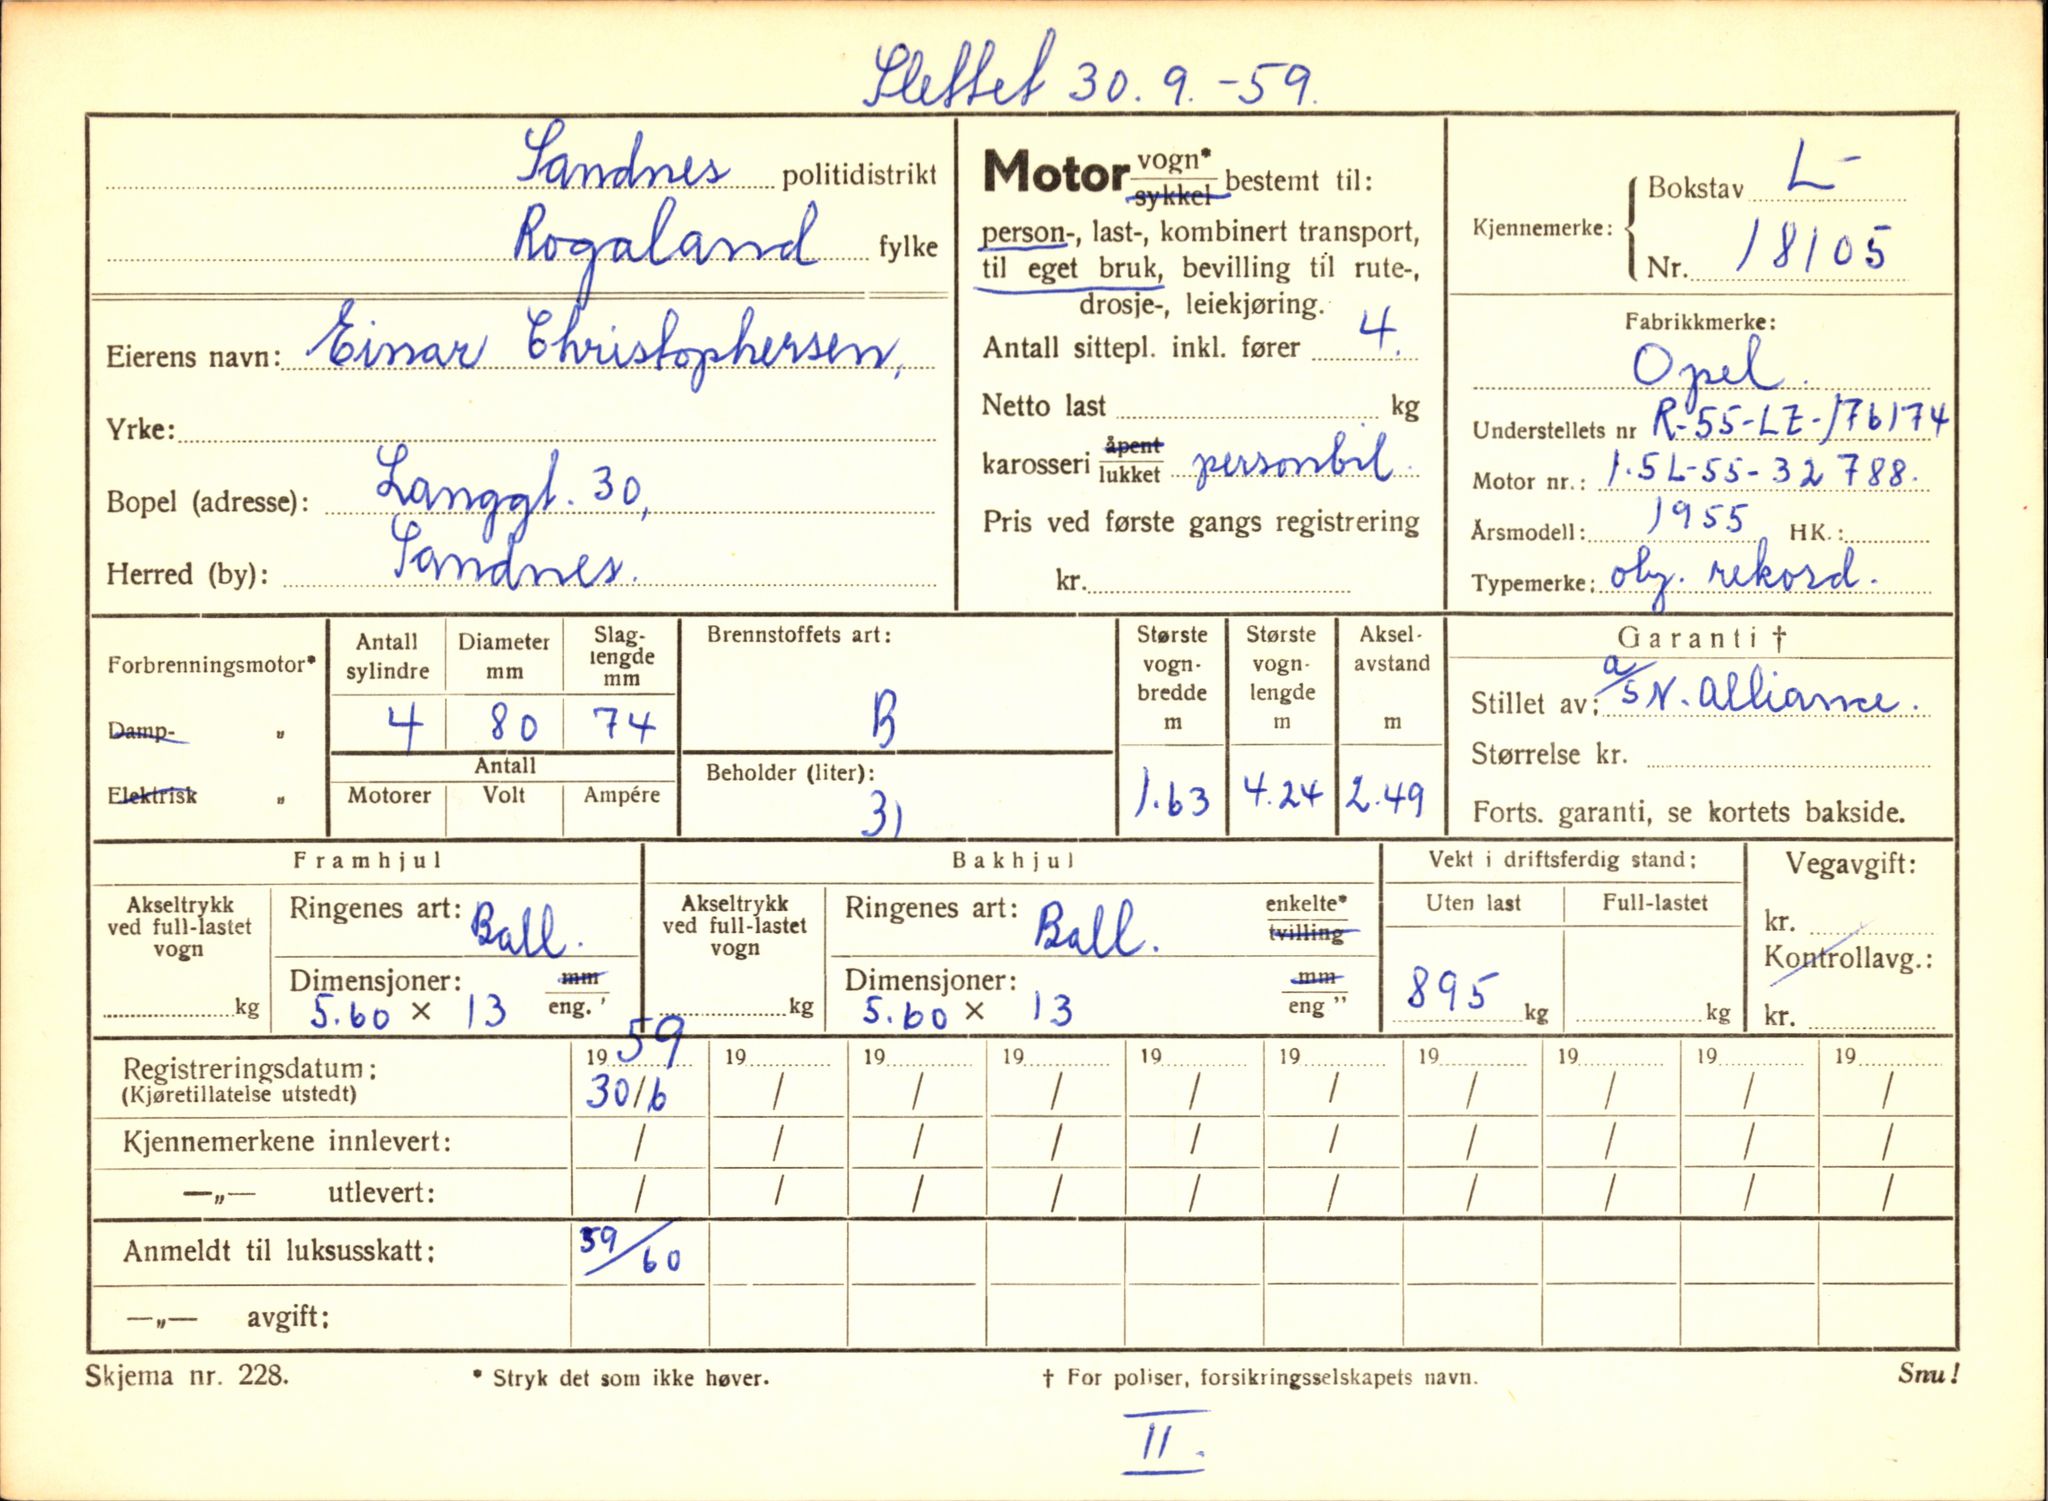 Slettet 30.9.-59.
Sandnes politidistrikt
Rogaland fylke
Eierens navn: Einar Christophersen,
Yrke:
Bopel (adresse): Langgt. 30,
Herred (by): Sandnes.
Motor vogn* sykkel bestemt til:
person-, last-, kombinert transport,
til eget bruk, bevilling til rute-,
drosje-, leiekjøring.
Antall sittepl. inkl. fører 4.
Netto last kg
karosseri åpent lukket personbil.
Pris ved første gangs registrering
kr.
Kjennemerke: Bokstav L-
Nr. 18105
Fabrikkmerke:
Opel.
Understellets nr R-55-LZ-176174
Motor nr.: 1.5L-55-32788.
Årsmodell: 1955 HK.:
Typemerke: oly. rekord.
Forbrenningsmotor*
Damp- "
Elektrisk "
Antall sylindre Diameter mm Slag-lengde mm
4 80 74
Antall
Motorer Volt Ampére
Brennstoffets art:
B
Beholder (liter):
31
Største vogn-bredde m Største vogn-lengde m Aksel-avstand m
1.63 4.24 2.49
Garanti †
Stillet av: a/s N. Alliance.
Størrelse kr.
Forts. garanti, se kortets bakside.
Framhjul
Akseltrykk ved full-lastet vogn
kg
Ringenes art: Ball.
Dimensjoner: mm
5.60 × 13 eng.'
Bakhjul
Akseltrykk ved full-lastet vogn
kg
Ringenes art: Ball. enkelte* tvilling
Dimensjoner: mm
5.60 × 13 eng "
Vekt i driftsferdig stand:
Uten last Full-lastet
895 kg kg
Vegavgift:
kr.
Kontrollavg.:
kr.
Registreringsdatum: 1959 19 19 19 19 19 19 19 19 19
(Kjøretillatelse utstedt) 30/6 / / / / / / / / /
Kjennemerkene innlevert: / / / / / / / / / /
—„— utlevert: / / / / / / / / / /
Anmeldt til luksusskatt: 59/60
—„— avgift:
Skjema nr. 228. * Stryk det som ikke høver. † For poliser, forsikringsselskapets navn. Snu!
II.